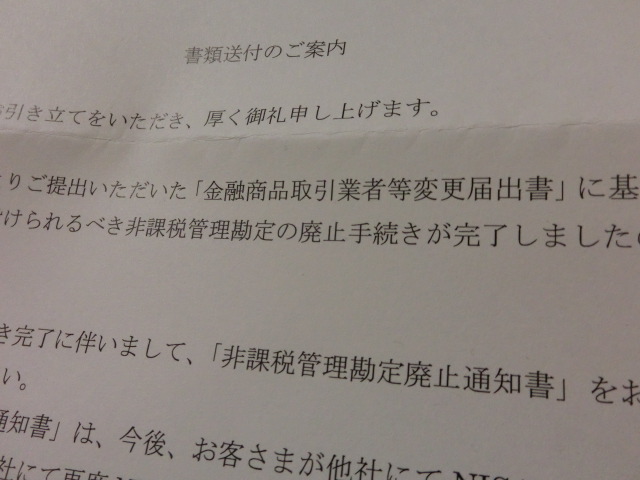 書類送付のご案内
引き立てをいただき、厚く御礼申し上げます。
りご提出いただいた「金融商品取引業者等変更届出書」に基
けられるべき非課税管理勘定の廃止手続きが完了しました
き完了に伴いまして、「非課税管理勘定廃止通知書」をお
い。
通知書」は、今後、お客さまが他社にて NIS
社にて再度